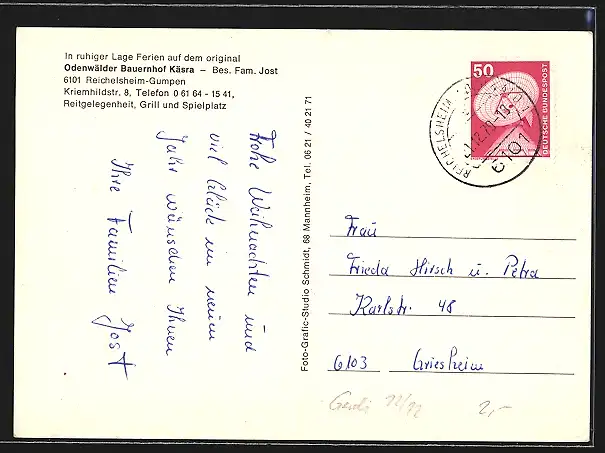 In ruhiger Lage Ferien auf dem original
Odenwälder Bauernhof Käsra – Bes. Fam. Jost
6101 Reichelsheim-Gumpen
Kriemhildstr. 8, Telefon 0 61 64 - 15 41,
Reitgelegenheit, Grill und Spielplatz
Frohe Weihnachten und
viel Glück im neuen
Jahr wünschen Ihnen
Ihre Familien Jost
Foto-Grafic-Studio Schmidt, 68 Mannheim, Tel. 06 21 / 40 21 71
50
DEUTSCHE BUNDESPOST
REICHELSHEIM
6101
Frau
Frieda Hirsch u. Petra
Karlstr. 48
6103 Griesheim
2,-